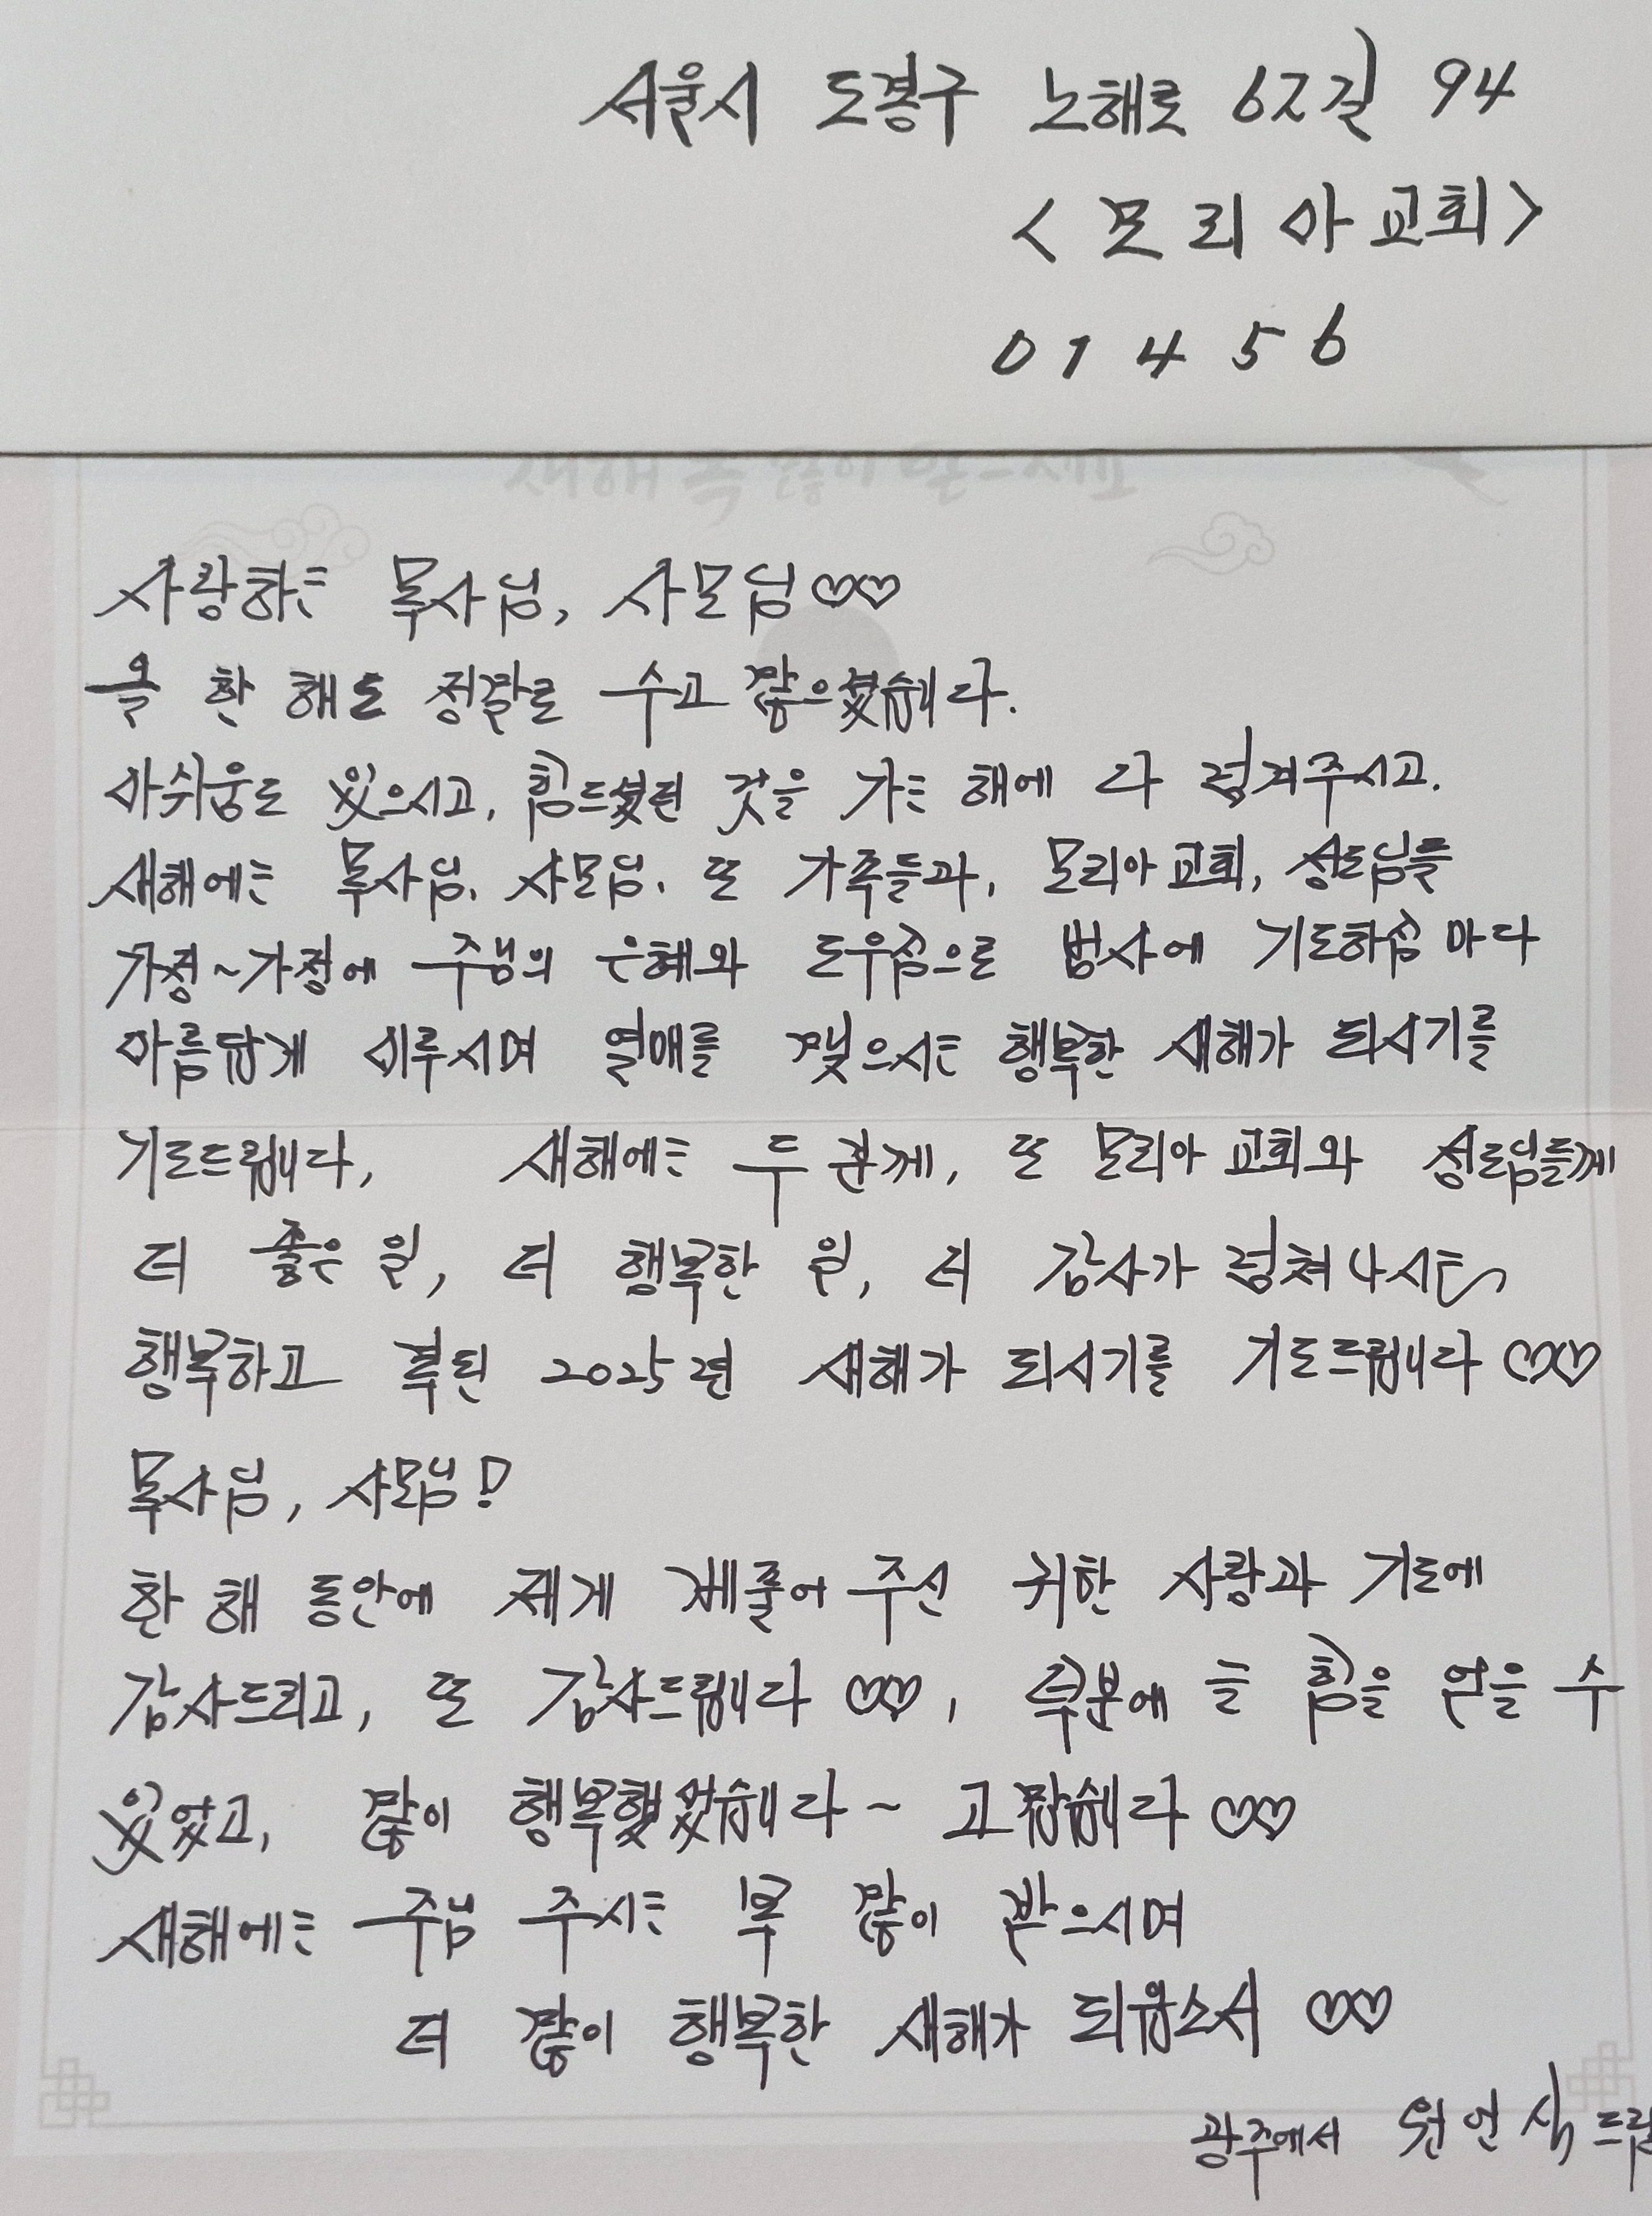 서울시 도봉구 노해로 62길 94
<모리아교회>
01456
새해 복 많이 받으세요
사랑하는 목사님, 사모님♡♡
올 한 해도 정말로 수고 많으셨습니다.
아쉬움도 있으시고, 힘드셨던 것을 가는 해에 다 넘겨주시고.
새해에는 목사님, 사모님. 또 가족들과, 모리아교회, 성도님들
가정~가정에 주님의 은혜와 도우심으로 범사에 기도하심 마다
아름답게 이루시며 열매를 맺으시는 행복한 새해가 되시기를
기도드립니다, 새해에는 두 분께, 또 모리아 교회와 성도님들께
더 좋은 일, 더 행복한 일, 더 감사가 넘쳐나시는
행복하고 복된 2025년 새해가 되시기를 기도드립니다 ♡♡
목사님, 사모님!
한 해 동안에 제게 베풀어 주신 귀한 사랑과 기도에
감사드리고, 또 감사드립니다 ♡♡, 덕분에 늘 힘을 얻을 수
있었고, 많이 행복했었습니다~ 고맙습니다 ♡♡
새해에는 주님 주시는 복 많이 받으시며
더 많이 행복한 새해가 되옵소서 ♡♡
광주에서 원언식 드림